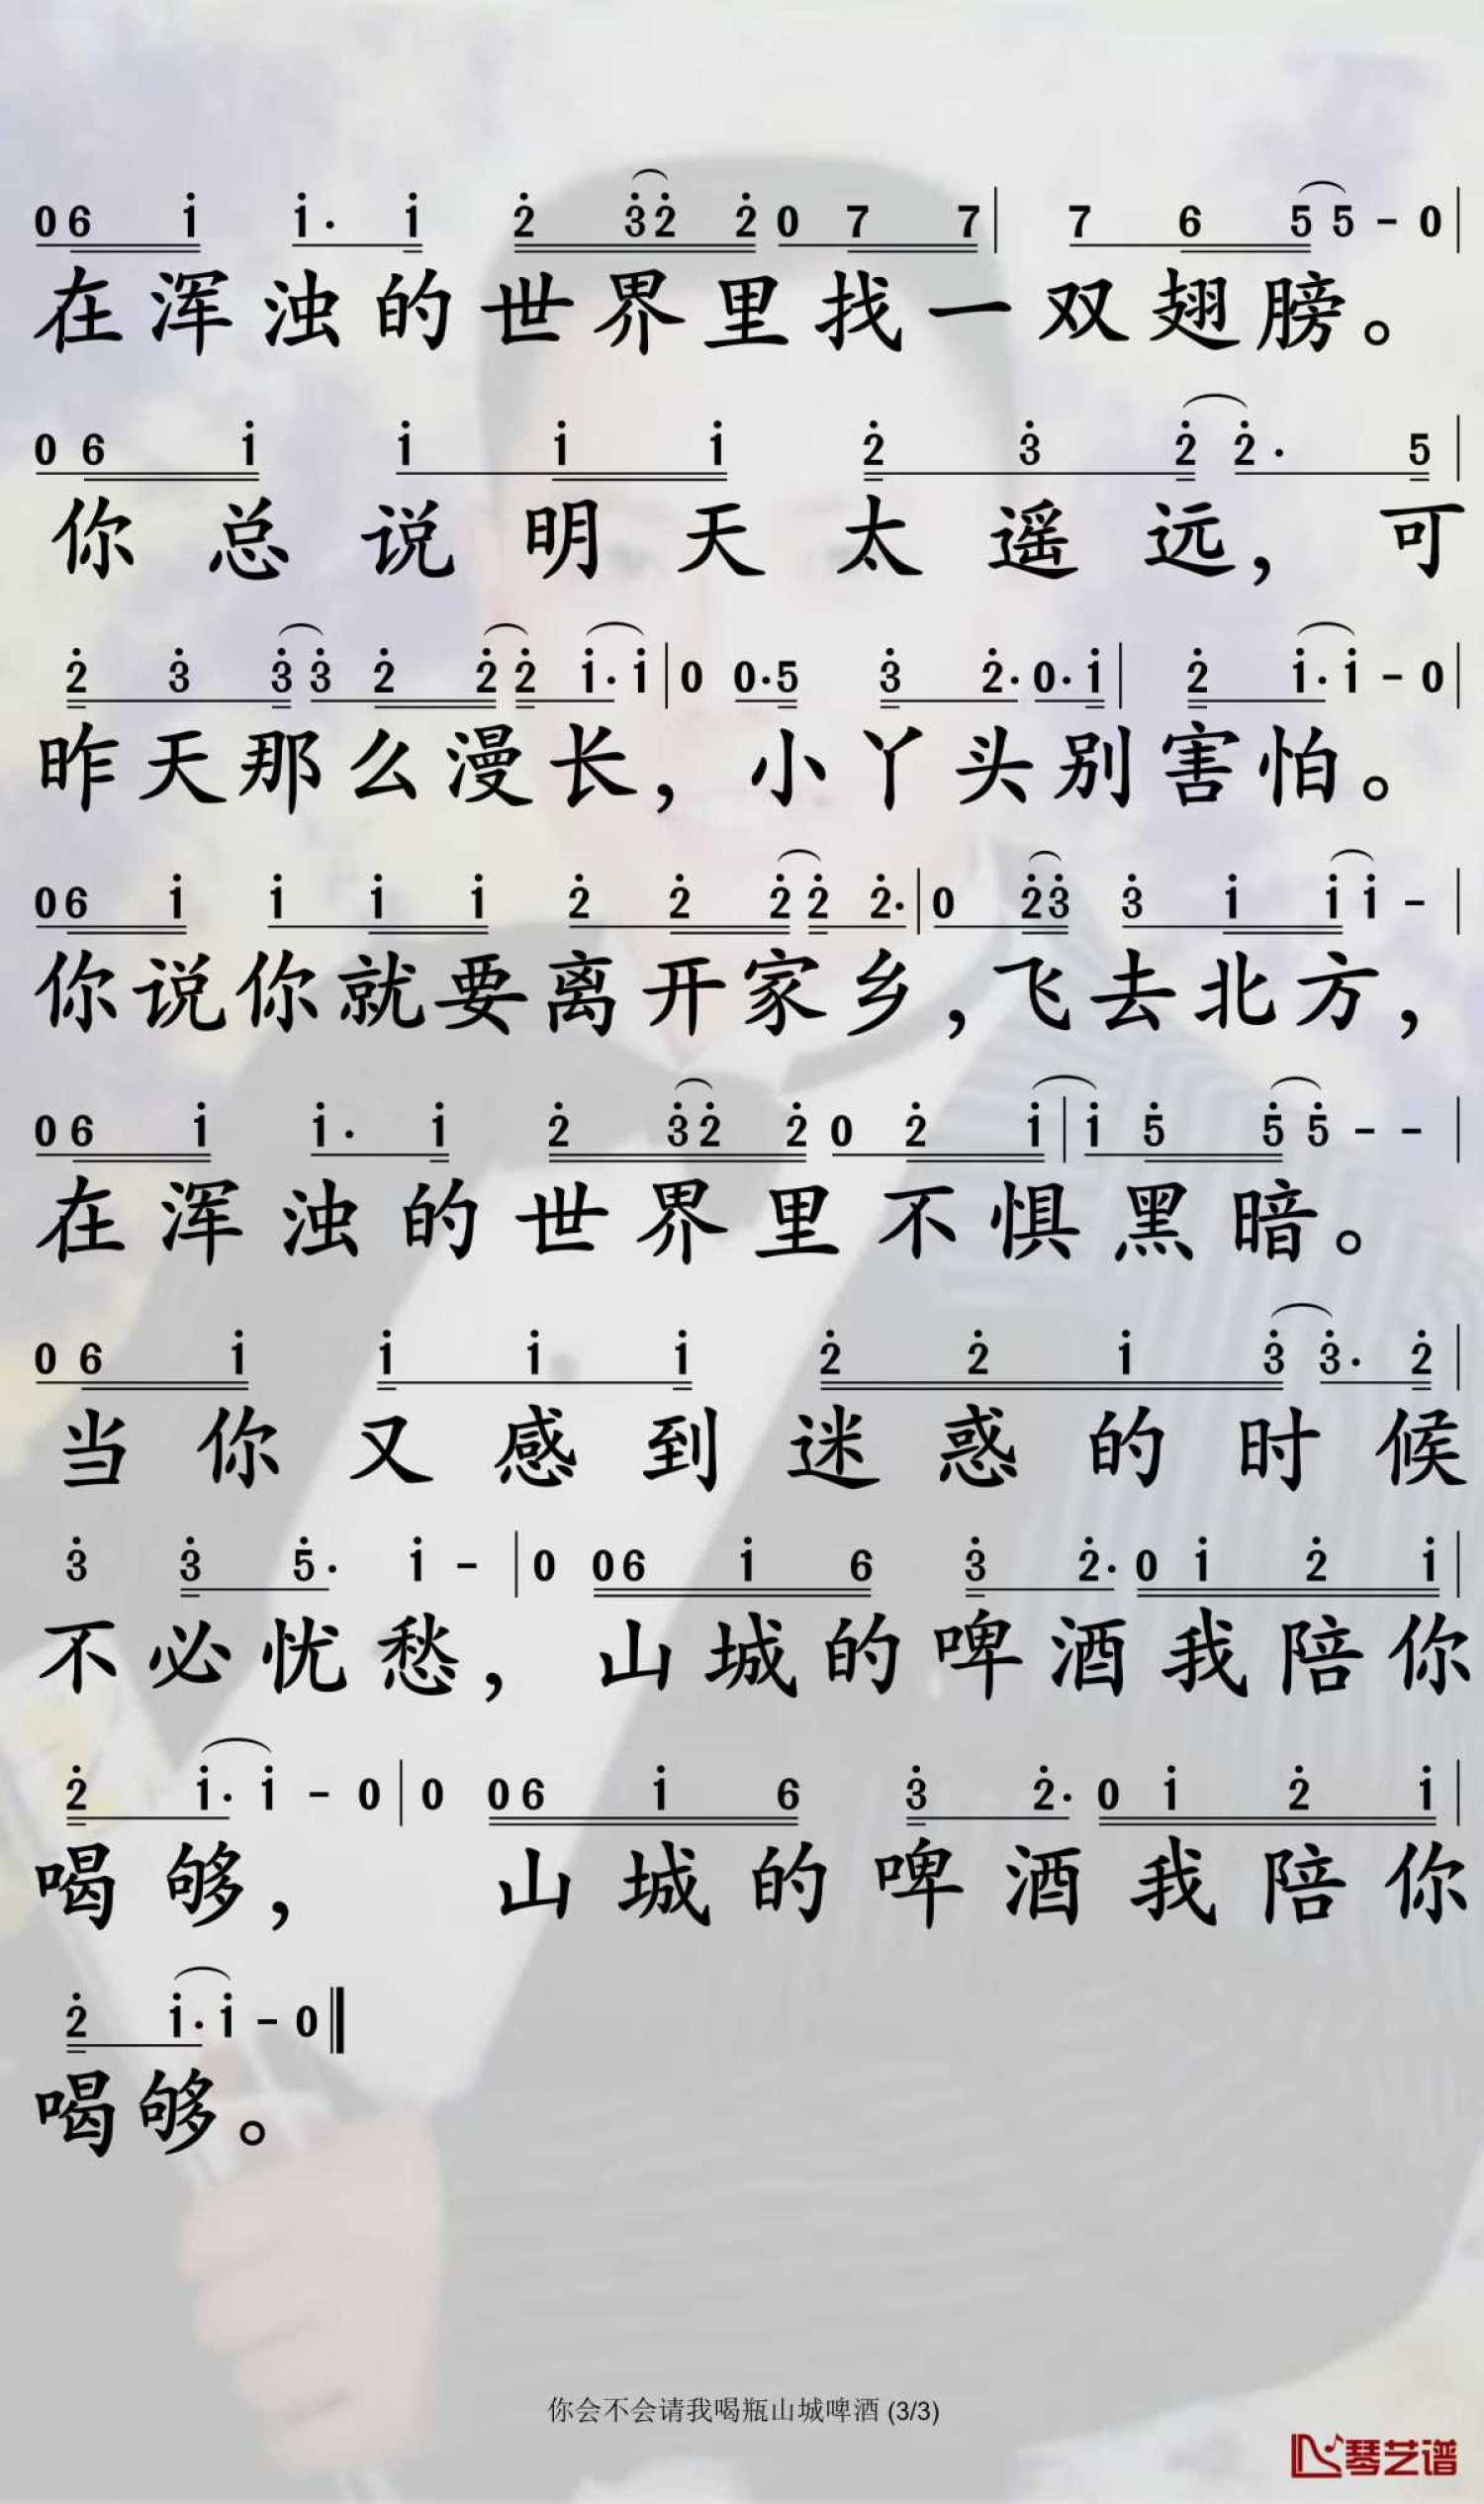 0 6 i̇ i̇· i̇ 2̇ 3̇2̇ 2̇ 0 7 7 | 7 6 5 5 - 0 |
在浑浊的世界里找一双翅膀。
0 6 i̇ i̇ i̇ i̇ 2̇ 3̇ 2̇ 2̇· 5 |
你总说明天太遥远，可
2̇ 3̇ 3̇ 3̇ 2̇ 2̇ 2̇ i̇· i̇ | 0 0·5 3̇ 2̇· 0· i̇ | 2̇ i̇· i̇ - 0 |
昨天那么漫长，小丫头别害怕。
0 6 i̇ i̇ i̇ i̇ 2̇ 2̇ 2̇ 2̇ 2̇· | 0 2̇3̇ 3̇ i̇ i̇ i̇ - |
你说你就要离开家乡，飞去北方，
0 6 i̇ i̇· i̇ 2̇ 3̇2̇ 2̇ 0 2̇ i̇ | i̇ 5̇ 5̇ 5̇ - - |
在浑浊的世界里不惧黑暗。
0 6 i̇ i̇ i̇ i̇ 2̇ 2̇ i̇ 3̇ 3̇· 2̇ |
当你又感到迷惑的时候
3̇ 3̇ 5̇· i̇ - | 0 0 6 i̇ 6 3̇ 2̇· 0 i̇ 2̇ i̇ |
不必忧愁，山城的啤酒我陪你
2̇ i̇· i̇ - 0 | 0 0 6 i̇ 6 3̇ 2̇· 0 i̇ 2̇ i̇ |
喝够，山城的啤酒我陪你
2̇ i̇· i̇ - 0 ‖
喝够。
你会不会请我喝瓶山城啤酒 (3/3)
琴艺谱